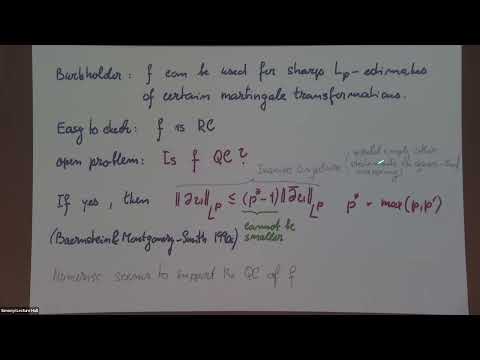 Burkholder: f can be used for sharp Lp-estimates
of certain martingale transformations.
Easy to check: f is RC
open problem: Is f QC?
Iwaniec conjecture
(would imply other
If yes, then ‖∂u‖_Lp ≤ (p*-1)‖∂̄u‖_Lp p* = max(p,p')
cannot be
smaller
(Baernstein & Montgomery-Smith 1990s)
Numerics seems to support the QC of f
Simonyi Lecture Hall